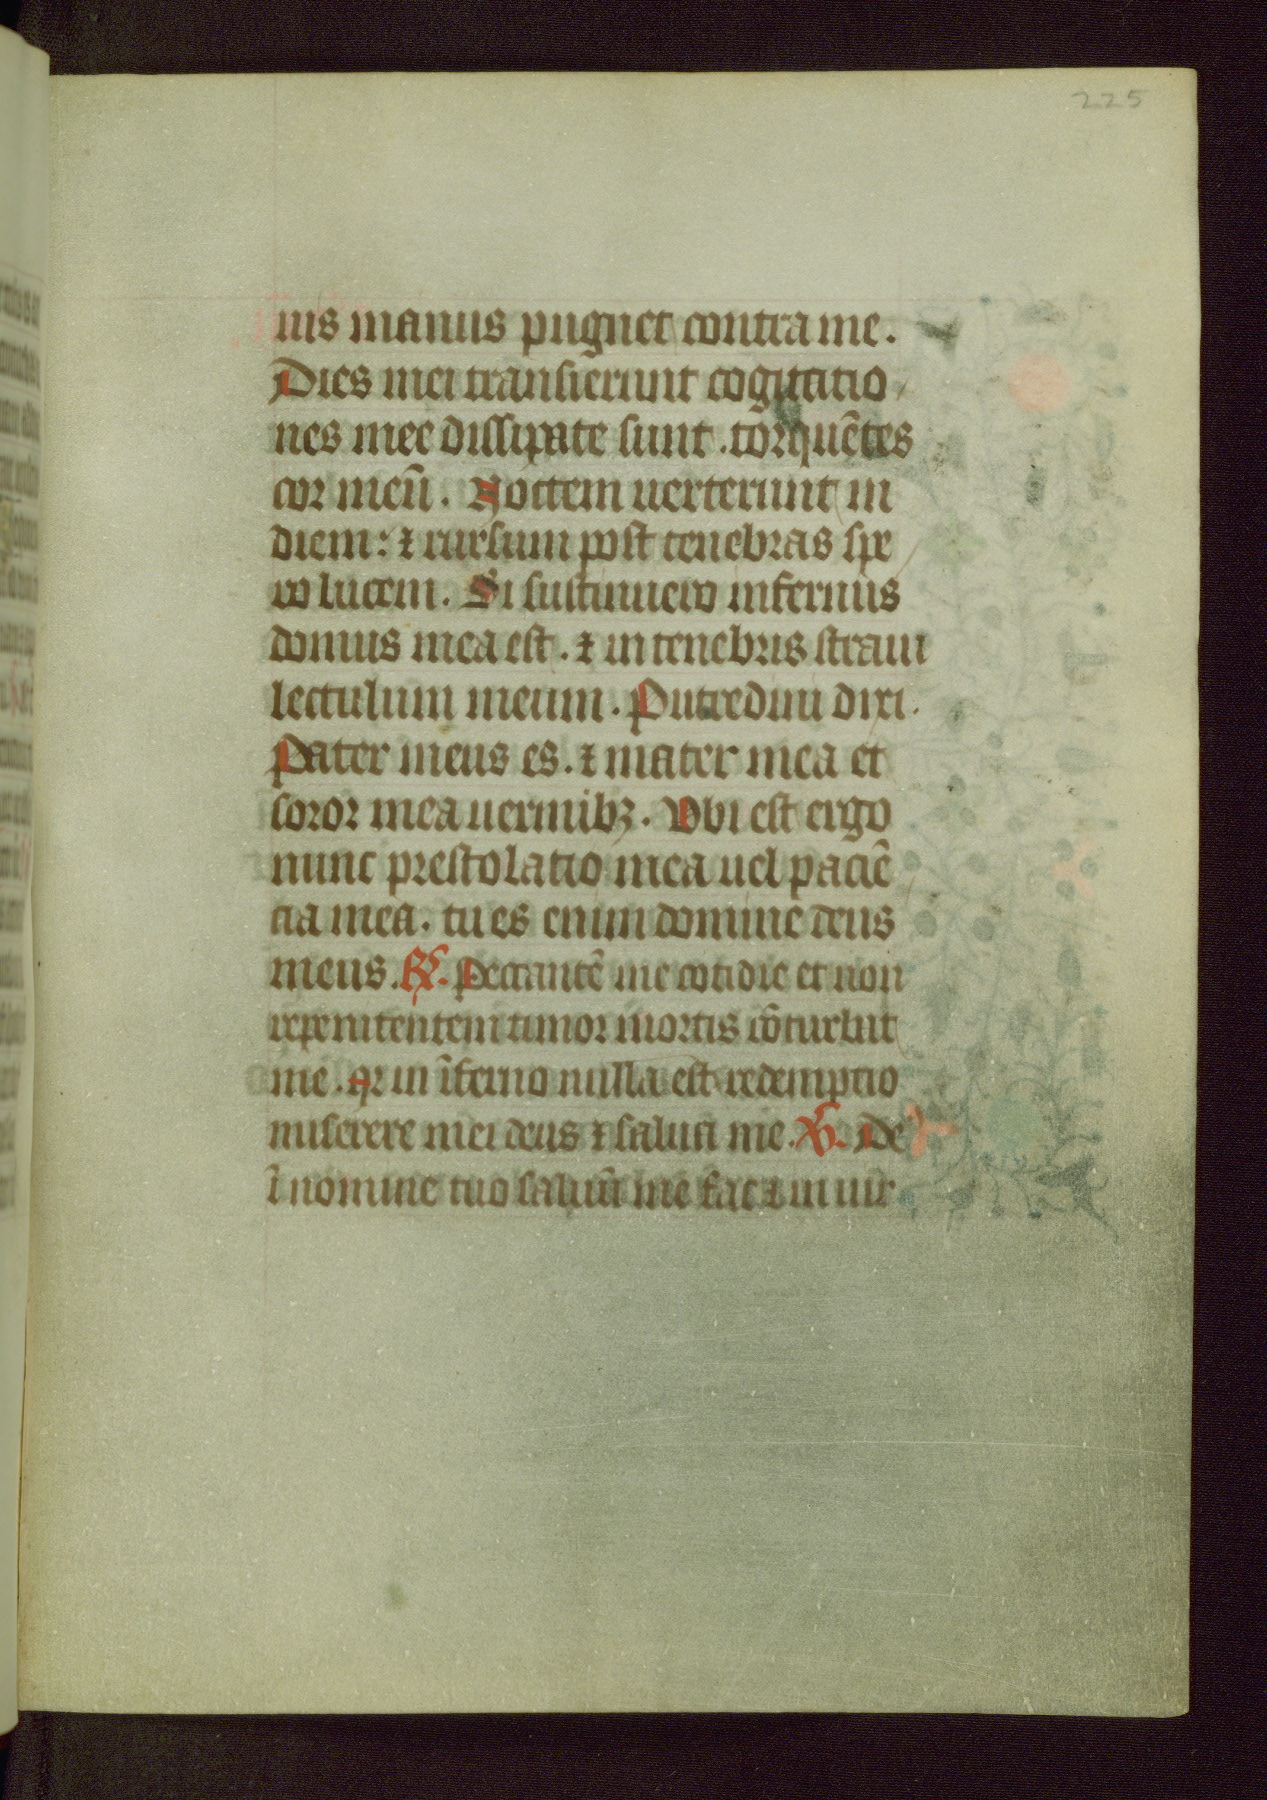 225
uis manus pugnet contra me.
Dies mei transierunt cogitatio
nes mee dissipate sunt . torquẽtes
cor meũ . Noctem uerterunt in
diem : ⁊ rursum post tenebras spe
ro lucem . Si sustinuero infernus
domus mea est . ⁊ in tenebris straui
lectulum meum . Putredini dixi .
Pater meus es . ⁊ mater mea et
soror mea uermibꝫ . Ubi est ergo
nunc prestolatio mea uel paciẽ
cia mea . tu es enim domine deus
meus . ℟. Peccantẽ me cotidie et non
repenitentem timor mortis cõturbat
me . qr in ĩferno nulla est redemptio
miserere mei deus ⁊ salua me . ℣. De⁹
ĩ nomine tuo saluũ me fac ⁊ in uir